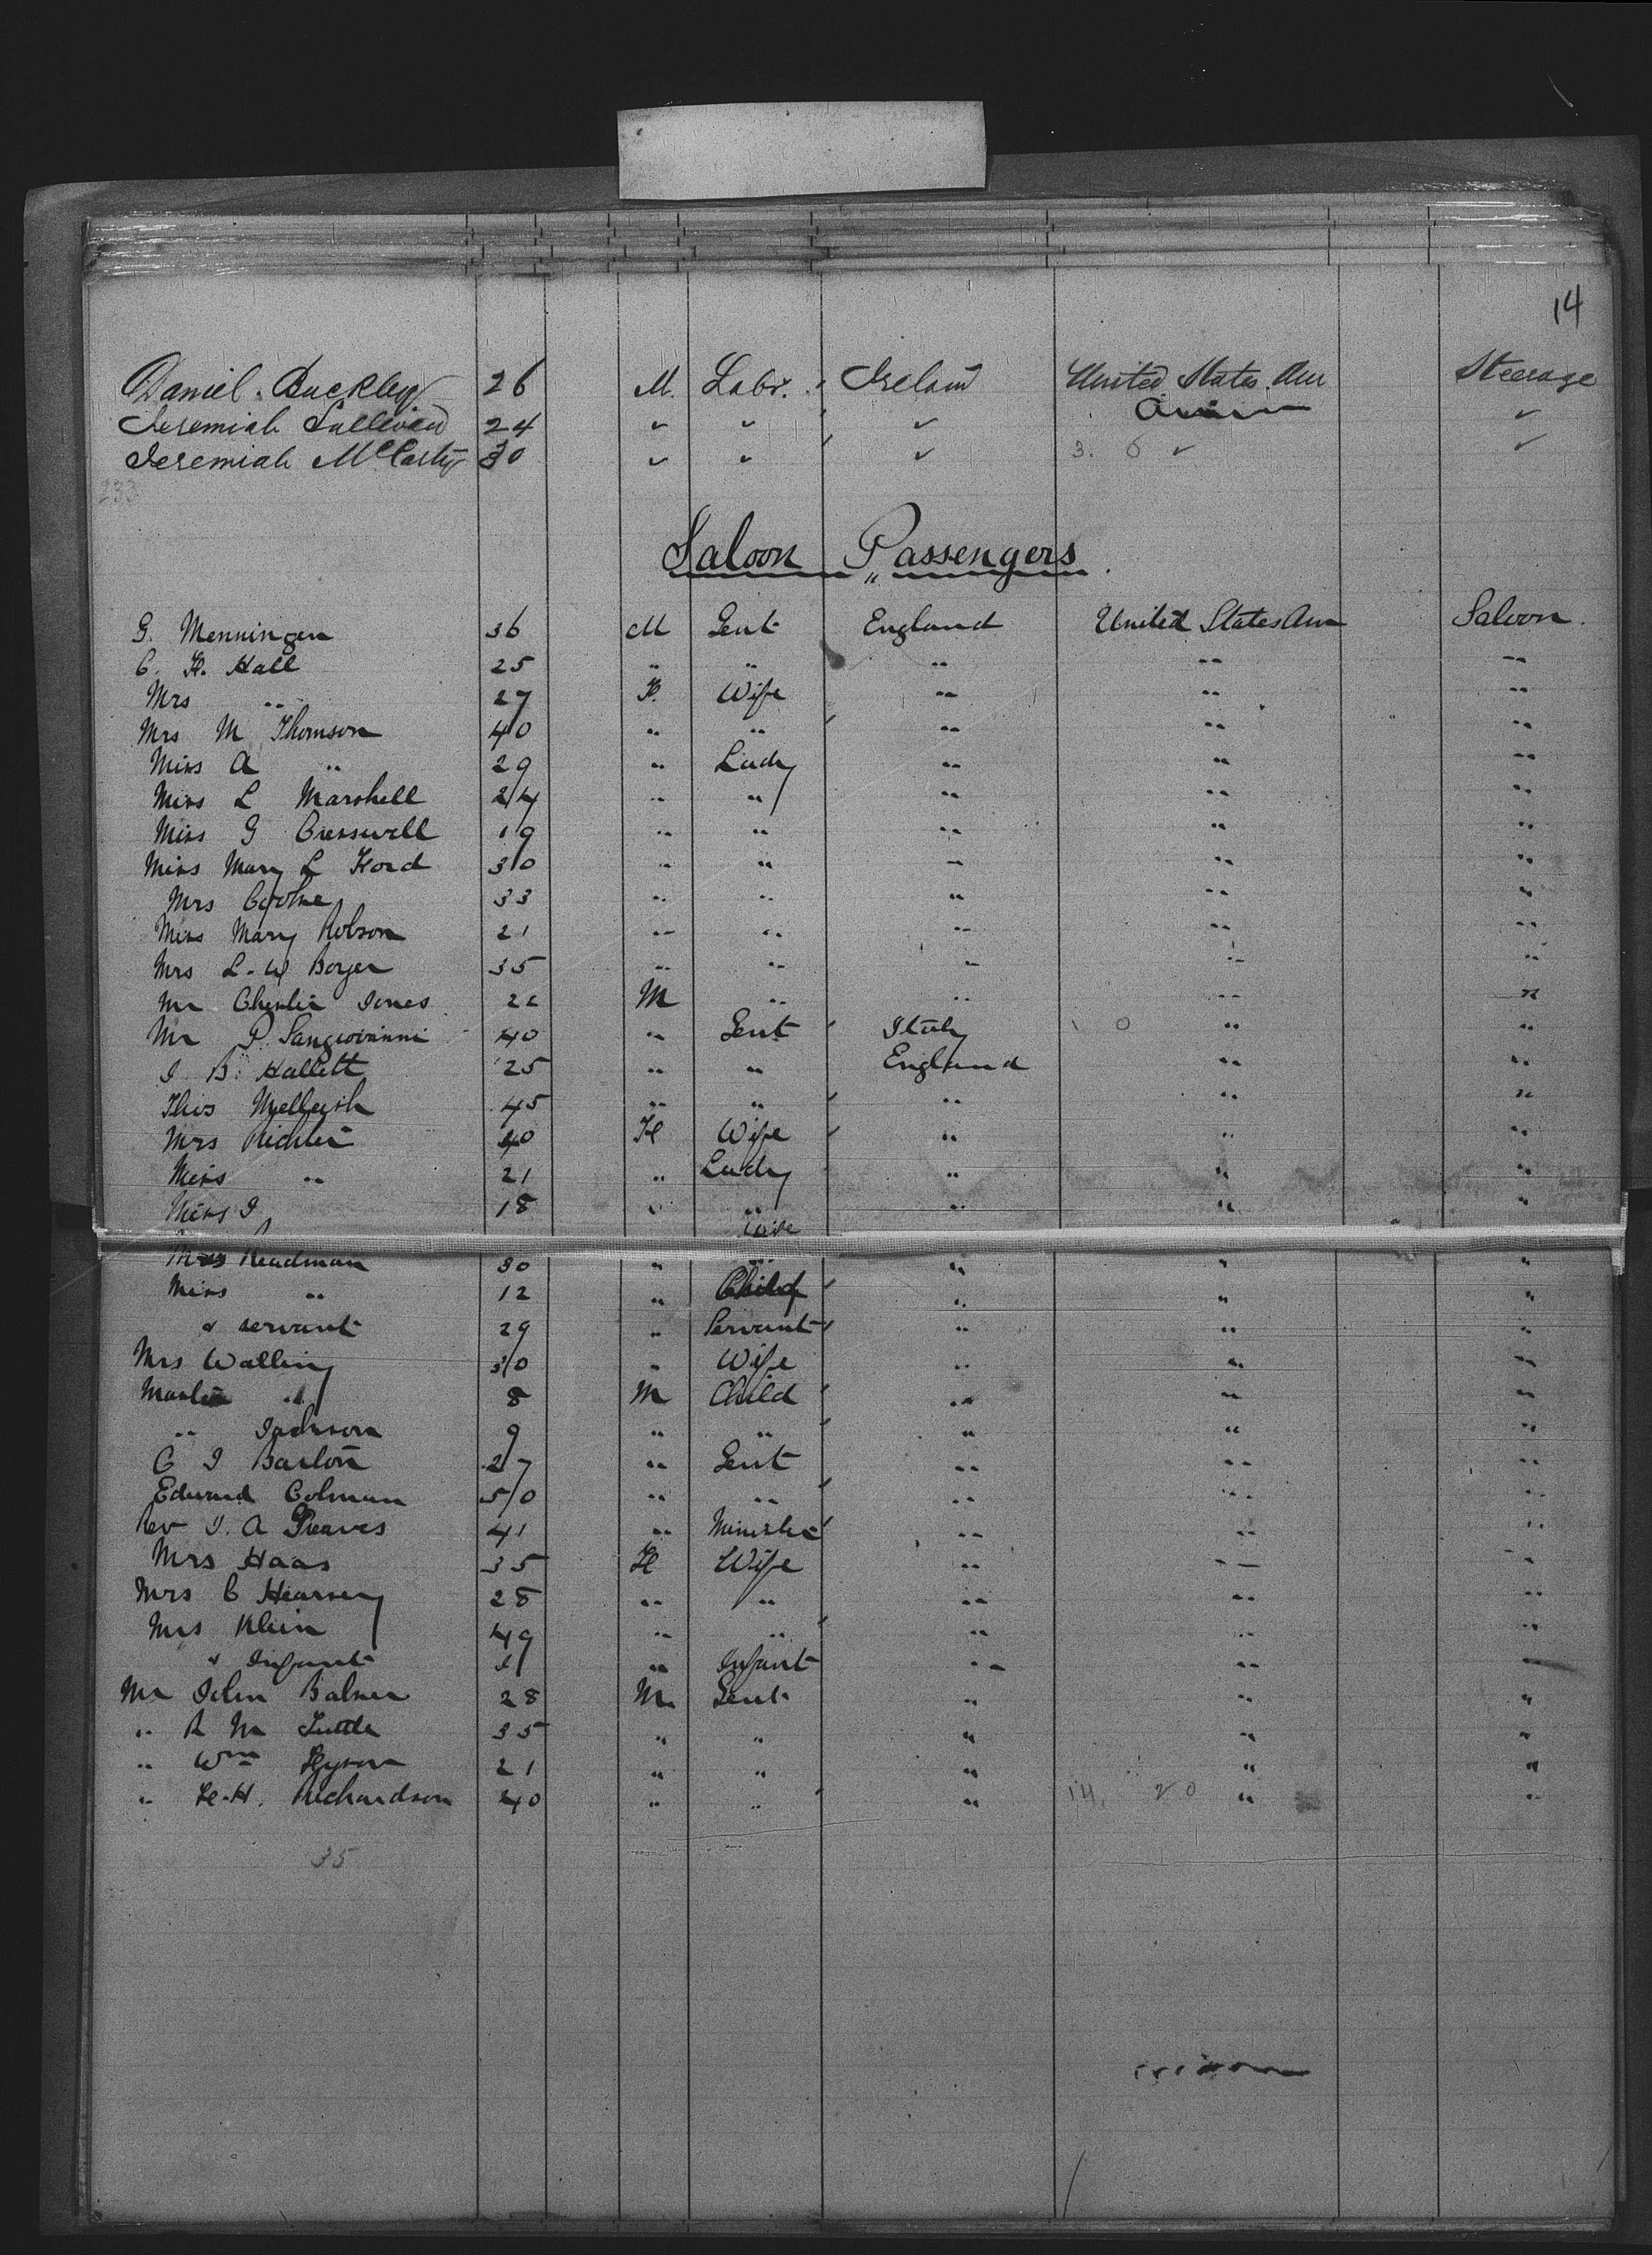 14
Daniel Buckley 26 M. Labr. Ireland United States Am Steerage
Jeremiah Sullivan 24 ✓ ✓ ✓ ✓
Jeremiah McCarty 30 ✓ ✓ ✓ 3. 6 ✓ ✓
233
Saloon Passengers
G. Menningen 36 M Gent England United States Am Saloon.
C. H. Hall 25 " " " " "
Mrs " 27 F. Wife " " "
Mrs M Thomson 40 " " " " "
Miss A " 29 " Lady " " "
Miss L Marshell 24 " " " " "
Miss G Cresswell 19 " " " " "
Miss Mary L Ford 30 " " " " "
Mrs Cooke 33 " " " " "
Miss Mary Robson 21 " " " " "
Mrs L. W Boyer 35 " " " " "
Mr Jones 22 M " " " "
Mr P. Sangiovanni 40 " Gent Italy 1 0 " "
J. B. Hallett 25 " " England " "
Thos Mellegish 45 " " " " "
Mrs Richter 40 F Wife " " "
Miss " 21 " Lady " " "
Miss J 18 " " " " "
Wife
Mrs Readman 30 " " " " "
Miss " 12 " Child " " "
& servant 29 " Servant " " "
Mrs Walling 30 " Wife " " "
Master " 8 M Child " " "
" Jackson 9 " " " " "
C J Barton 27 " Gent " " "
Edward Colman 50 " " " " "
Rev J. A Greaves 41 " Minister " " "
Mrs Haas 35 F Wife " " "
Mrs C Hearsey 28 " " " " "
Mrs Klein 49 " " " " "
& Infant 1 " Infant " " "
Mr John Balmer 28 M. Gent " " "
" R M Tuttle 35 " " " " "
" Wm Hyson 21 " " " " "
" F. H. Richardson 40 " " " 14. 20 " "
35